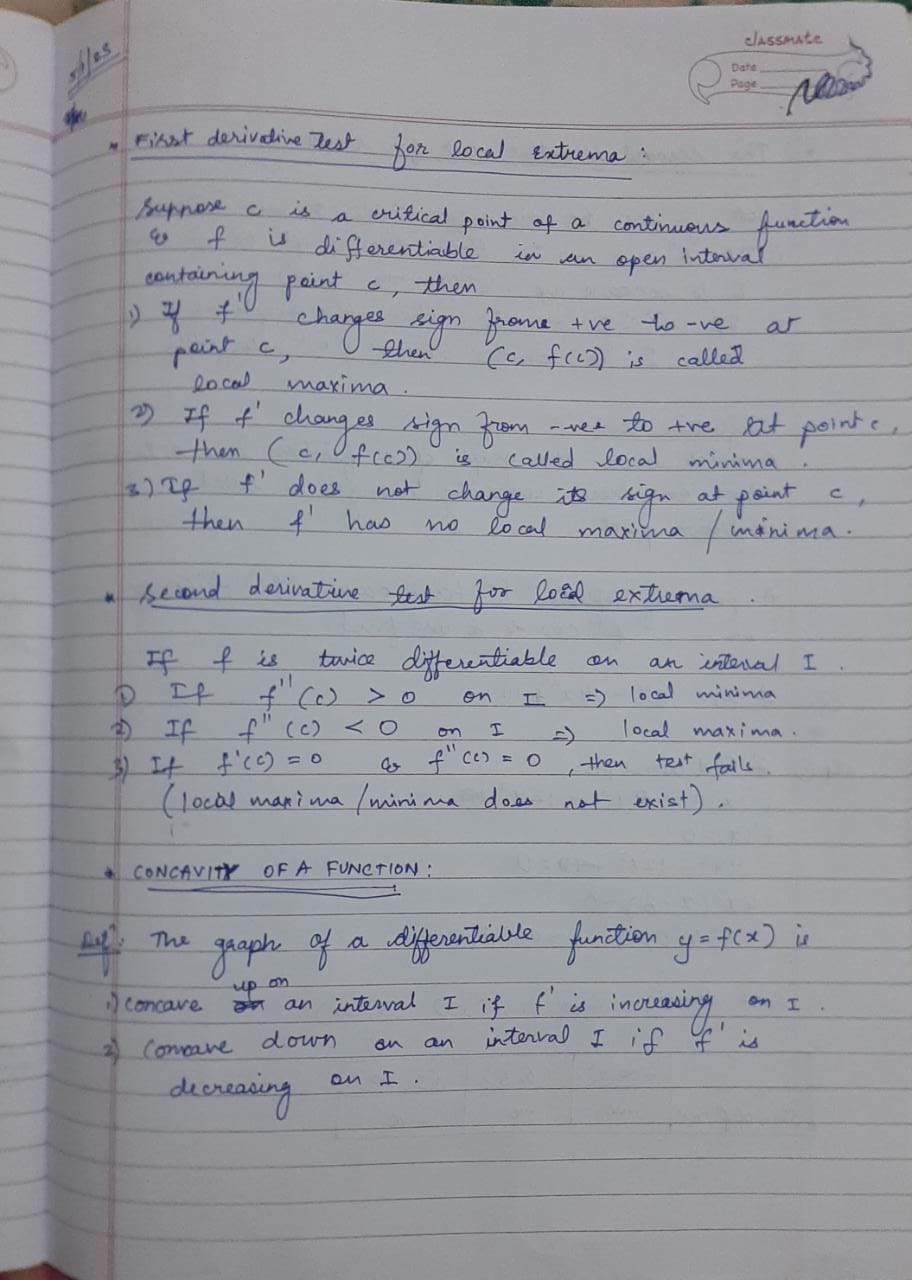 classmate
Date
Page
• First derivative Test for local extrema :
Suppose c is a critical point of a continuous function
& f is differentiable in an open interval
containing point c, then
1) If f' changes sign frome +ve to -ve at
point c, then (c, f(c)) is called
local maxima.
2) If f' changes sign from -vee to +ve at point c,
then (c, f(c)) is called local minima.
3) If f' does not change its sign at point c,
then f' has no local maxima / minima.
• Second derivative test for local extrema.
If f is twice differentiable on an interval I.
1) If f''(c) > 0 on I => local minima
2) If f''(c) < 0 on I => local maxima.
3) If f'(c) = 0 & f''(c) = 0, then test fails.
(local maxima / minima does not exist).
• CONCAVITY OF A FUNCTION :
Defn: The graph of a differentiable function y = f(x) is
1) concave up on an interval I if f' is increasing on I.
2) Concave down on an interval I if f' is
decreasing on I.